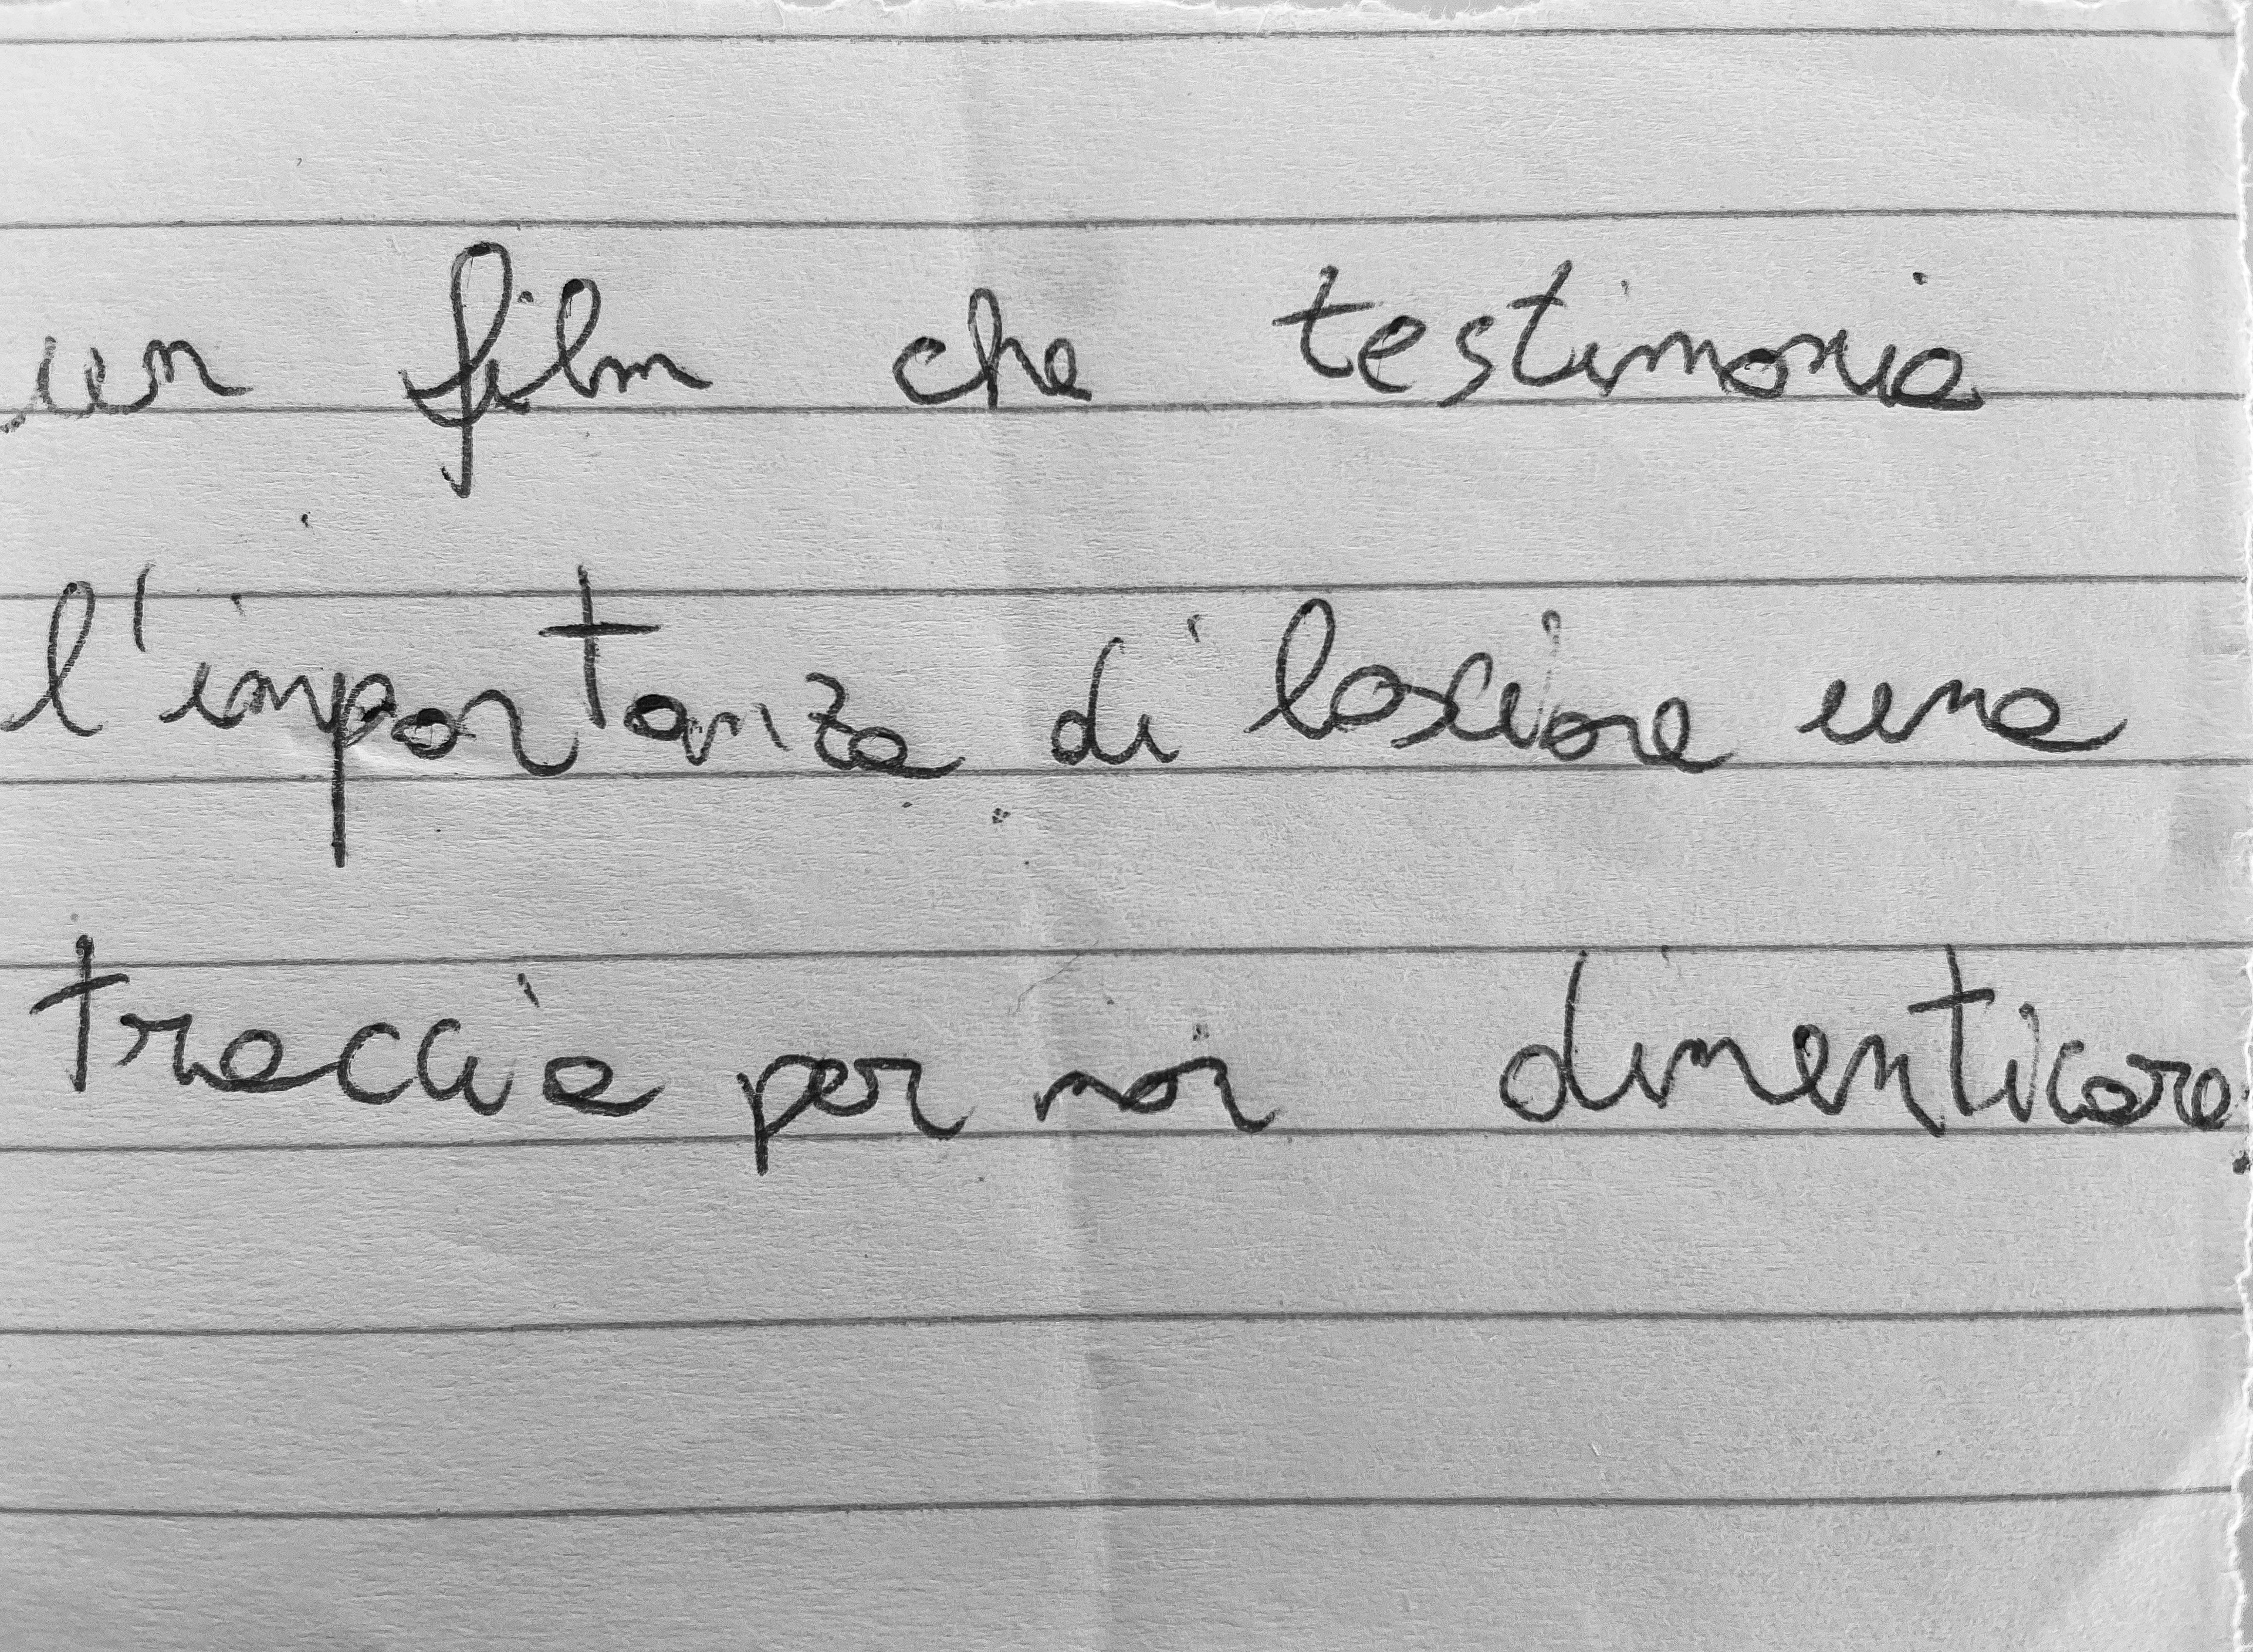 un film che testimonia
l'importanza di lasciare una
traccia per non dimenticare.